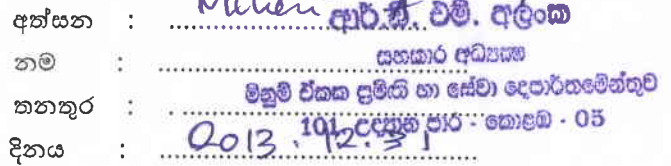 අත්සන : ආර්.ඩී. එම්. අලංක
නම : සහකාර අධ්‍යක්ෂ
තනතුර : මිනුම් ඒකක ප්‍රමිති හා සේවා දෙපාර්තමේන්තුව
101, උද්‍යාන පාර - කොළඹ - 05
දිනය : 2013.12.31